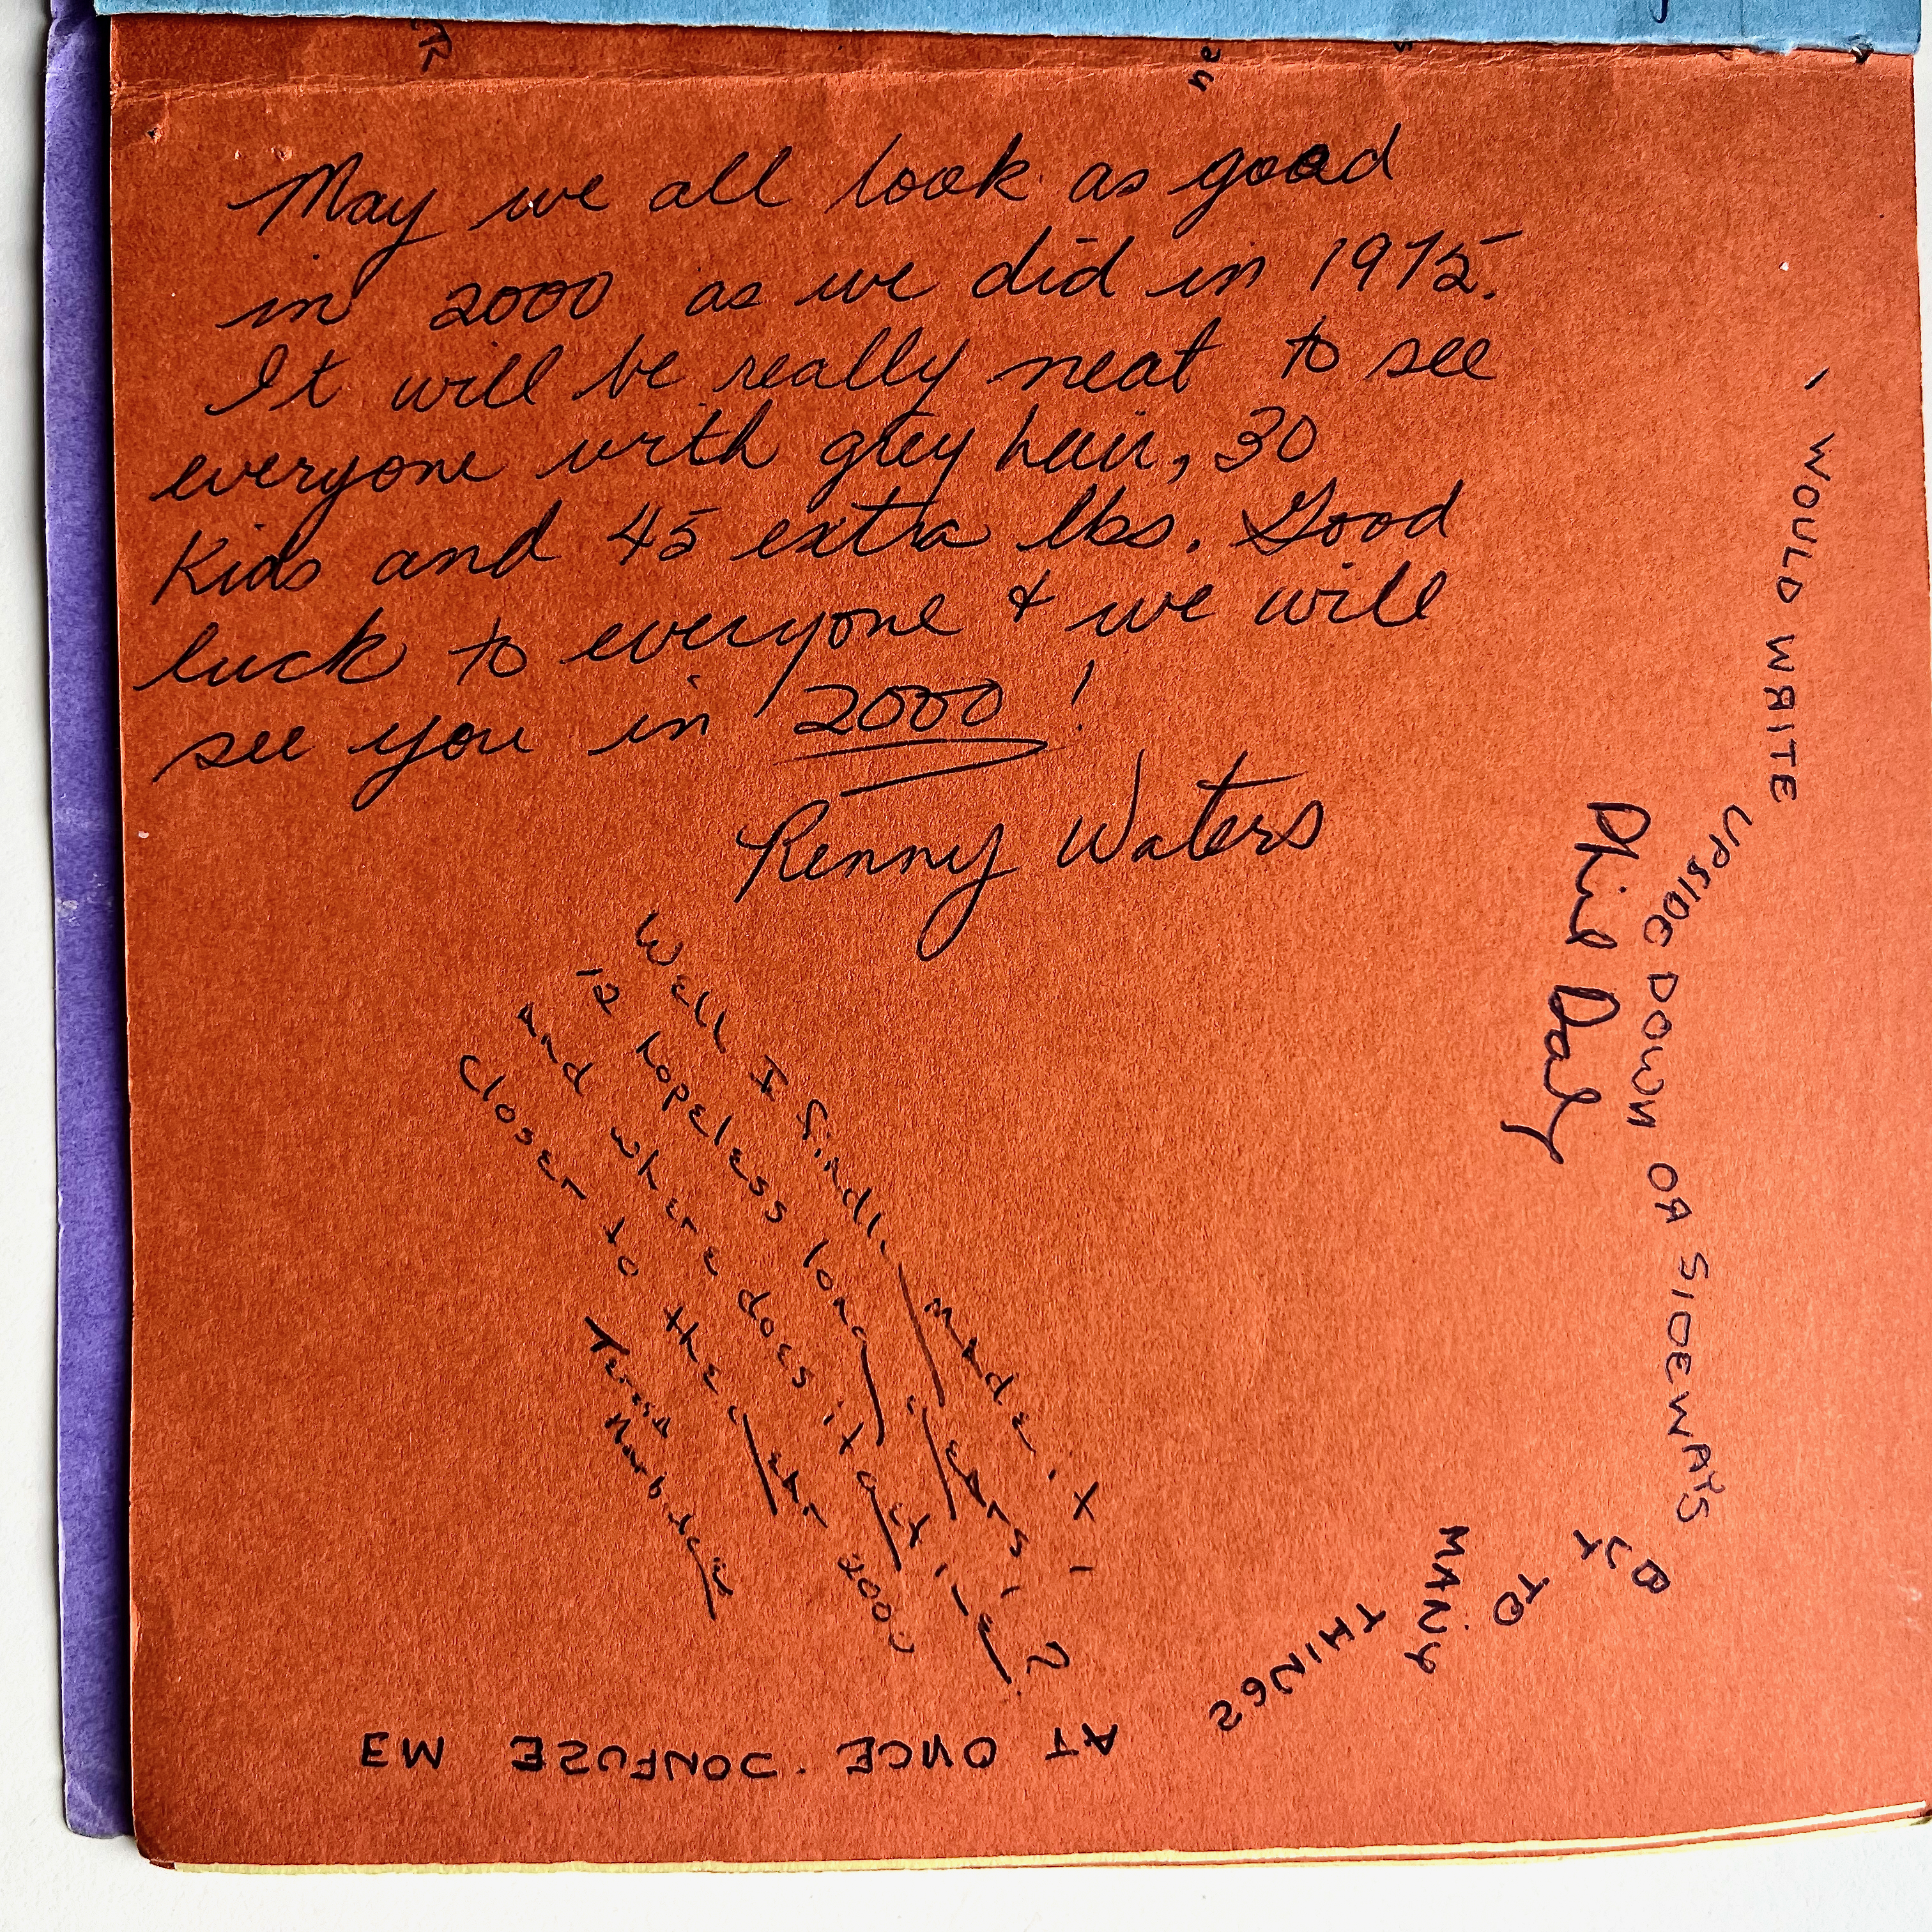 May we all look as good
in 2000 as we did in 1975.
It will be really neat to see
everyone with grey hair, 30
Kids and 45 extra lbs. Good
luck to everyone & we will
see you in 2000!
Waters
Well I finally made it -
12 hopeless long years -
And where does it get you?
Closer to the year 2000
I WOULD WRITE
UPSIDE DOWN OR SIDEWAYS
BUT
TO
MANY
THINGS
AT ONCE CONFUZE ME
Phil Daly